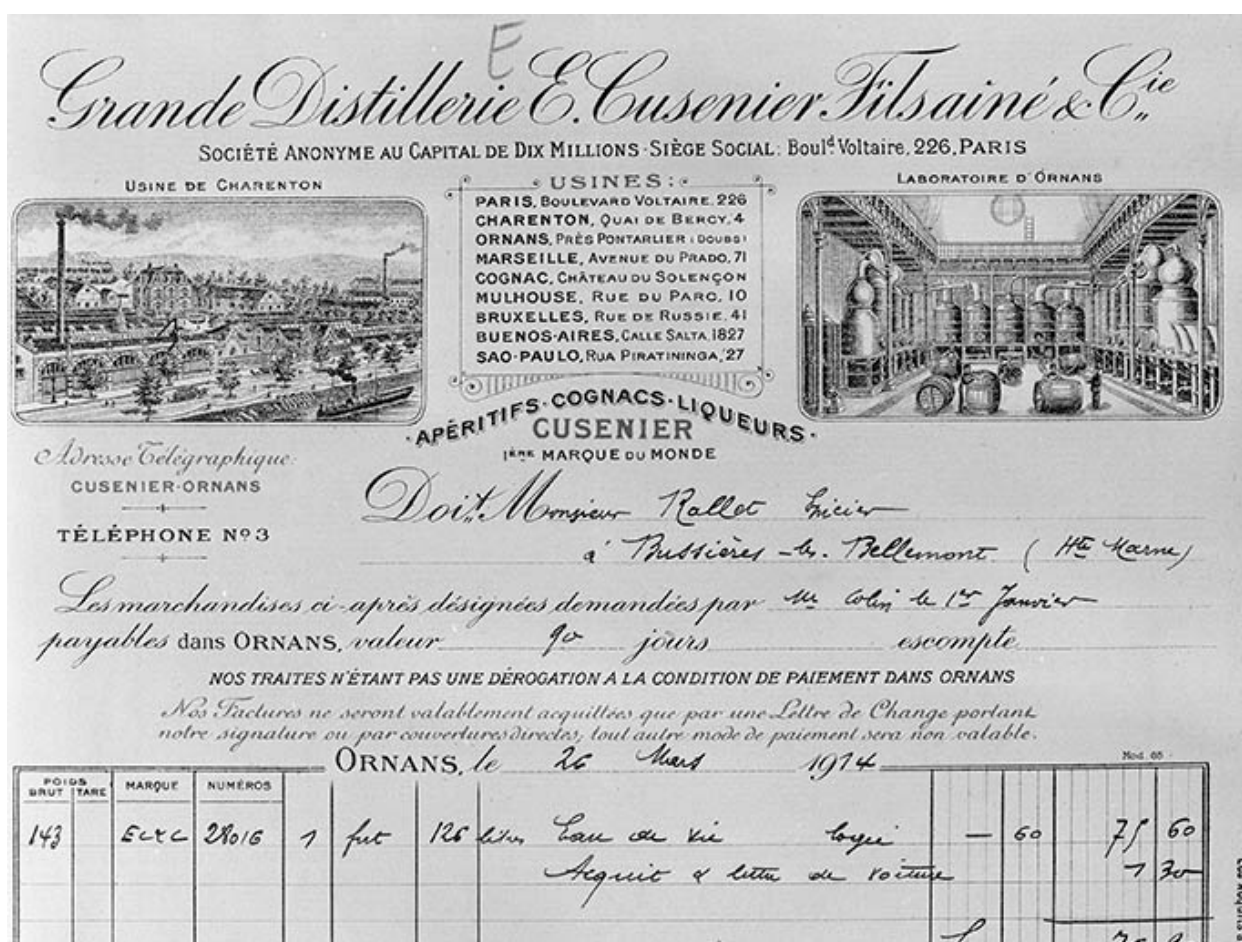 E
Grande Distillerie E. Cusenier Fils ainé & Cie
SOCIÉTÉ ANONYME AU CAPITAL DE DIX MILLIONS - SIÈGE SOCIAL: Bould Voltaire, 226, PARIS
USINE DE CHARENTON
USINES:
PARIS, BOULEVARD VOLTAIRE, 226
CHARENTON, QUAI DE BERCY, 4
ORNANS, PRÈS PONTARLIER (DOUBS)
MARSEILLE, AVENUE DU PRADO, 71
COGNAC, CHÂTEAU DU SOLENÇON
MULHOUSE, RUE DU PARC, 10
BRUXELLES, RUE DE RUSSIE, 41
BUENOS-AIRES, CALLE SALTA, 1827
SAO-PAULO, RUA PIRATININGA, 27
LABORATOIRE D'ORNANS
·APÉRITIFS·COGNACS·LIQUEURS·
CUSENIER
1ÈRE MARQUE DU MONDE
Adresse Télégraphique:
CUSENIER-ORNANS
TÉLÉPHONE Nº 3
Doit Monsieur Rallet Epicier
à Bussières-les-Bellemont (Hte Marne)
Les marchandises ci-après désignées demandées par Mr Colin le 1er Janvier
payables dans ORNANS, valeur 90 jours escompte
NOS TRAITES N'ÉTANT PAS UNE DÉROGATION A LA CONDITION DE PAIEMENT DANS ORNANS
Nos Factures ne seront valablement acquittées que par une Lettre de Change portant
notre signature ou par couvertures directes; tout autre mode de paiement sera non valable.
ORNANS, le 26 Mars 1914
Mod. 65
POIDS BRUT TARE MARQUE NUMÉROS
143 EC&C 28016 1 fut 126 litres Eau de vie — 60 75 60
Acquit & lettre de voiture 1 30